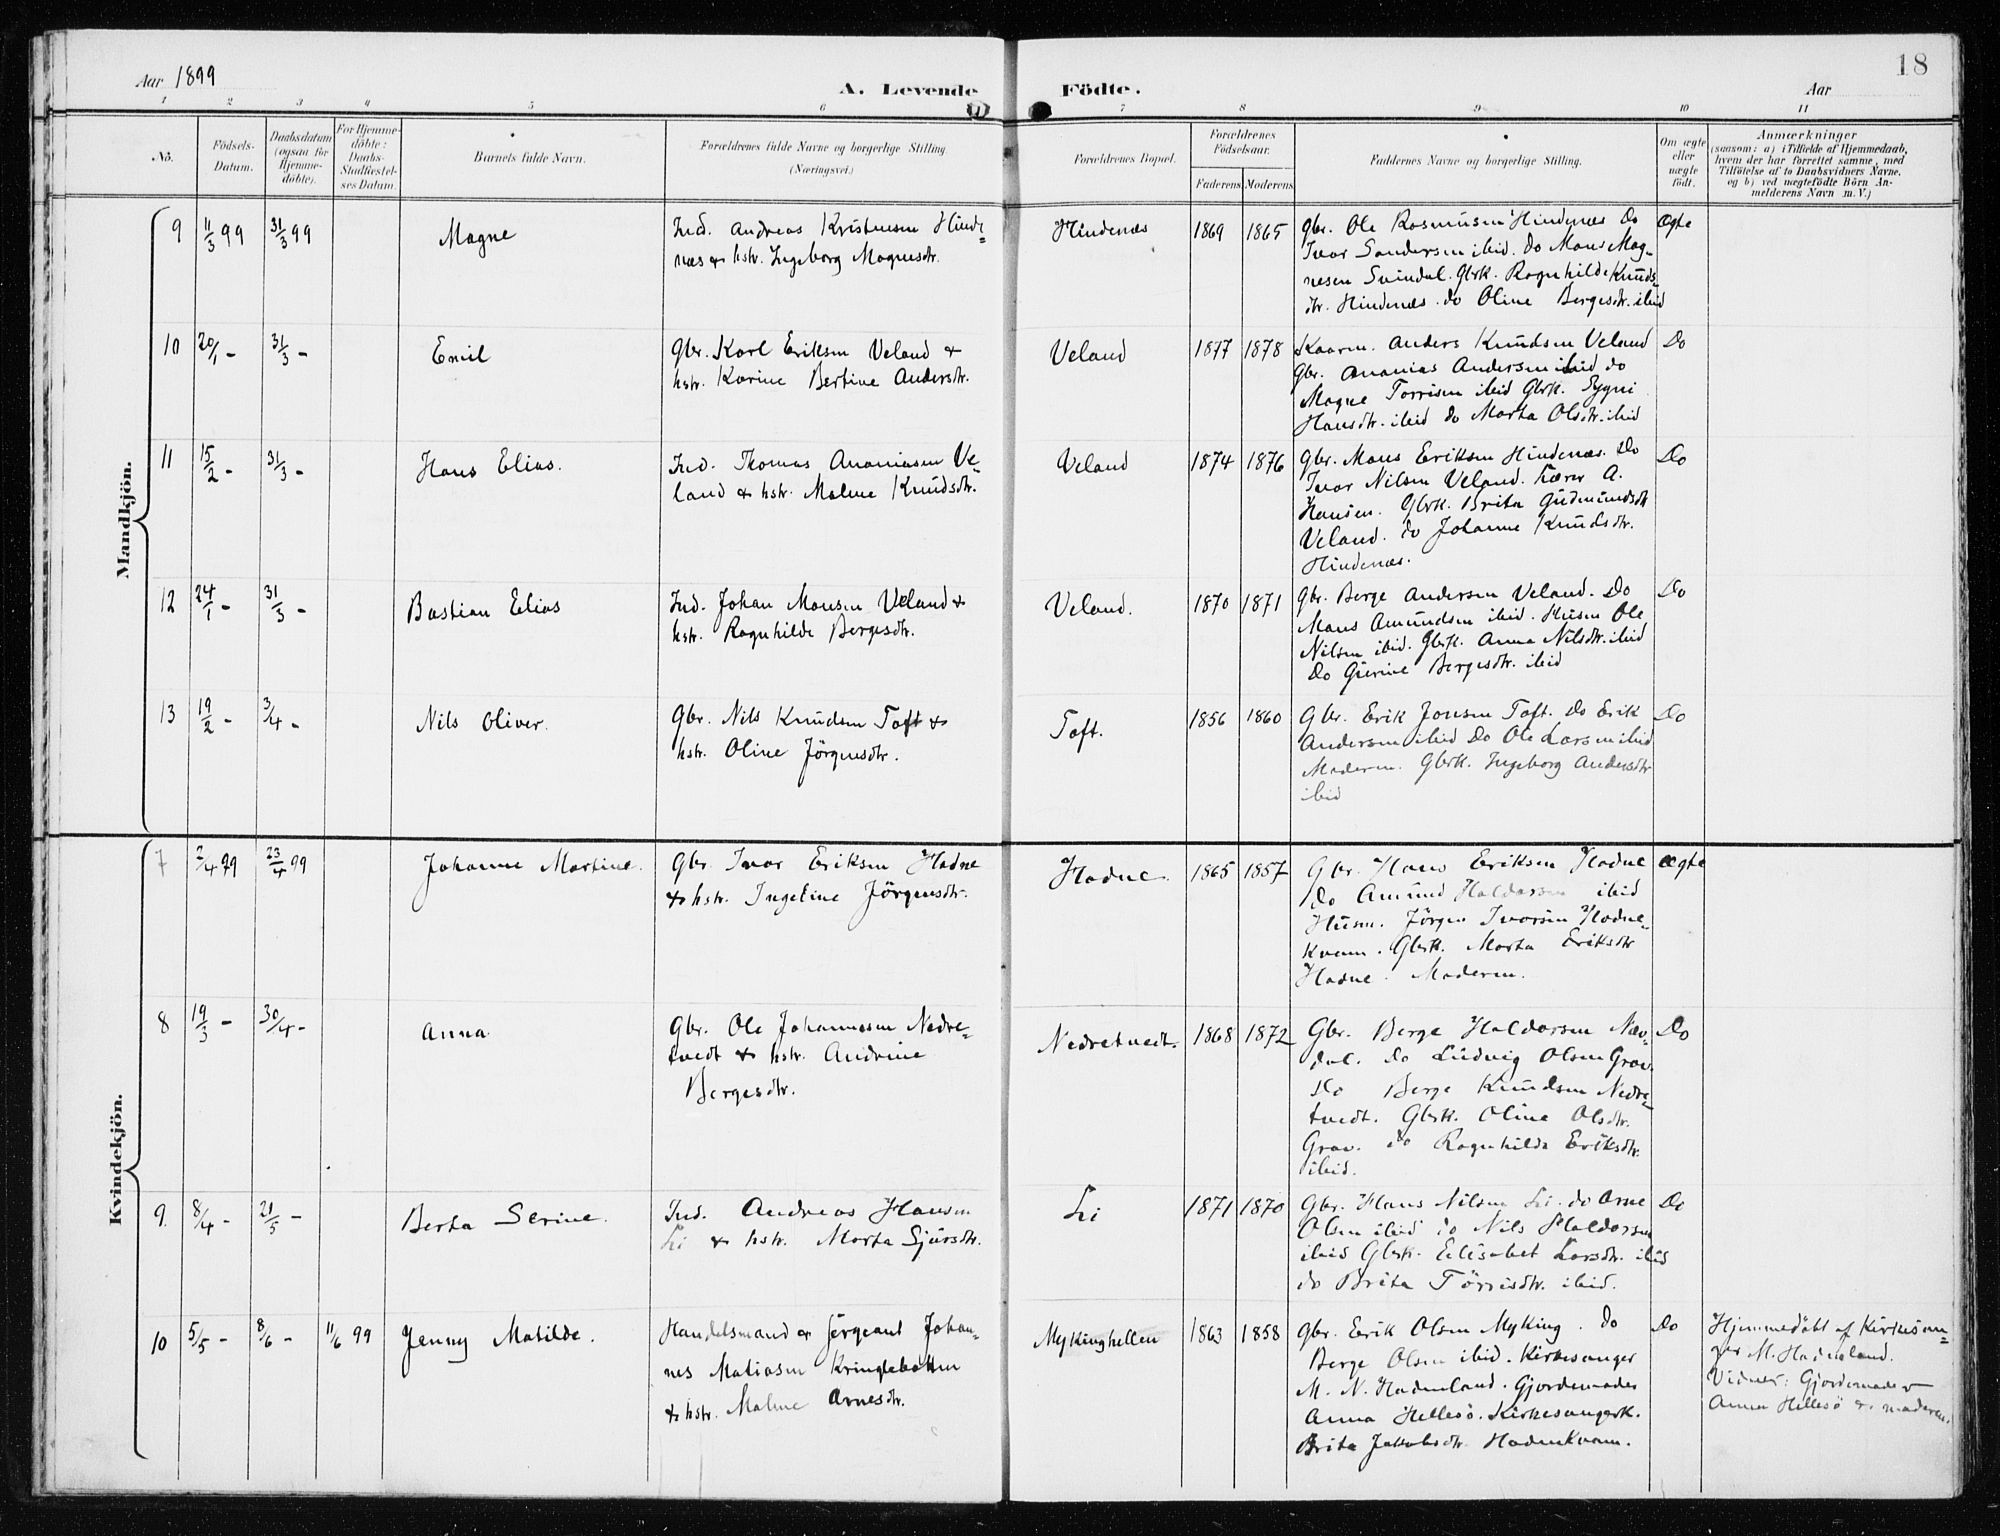 Aar 1899
A. Levende Födte.
Aar
18
1 2 3 4 5 6 7 8 9 10 11
No.
Födsels-Datum.
Daabsdatum (ogsaa for Hjemme-döbte).
For Hjemme-döbte: Daabs-Stadfæstel-ses Datum.
Barnets fulde Navn.
Forældrenes fulde Navne og borgerlige Stilling. (Næringsvei.)
Forældrenes Bopæl.
Forældrenes Födselsaar.
Faderens Moderens
Faddernes Navne og borgerlige Stilling.
Om ægte eller uægte födt.
Anmærkninger
(saasom: a) i Tilfælde af Hjemmedaab,
hvem der har forrettet samme, med
Tilföielse af to Daabsvidners Navne.
og b) ved uægtefödte Börn An-
melderens Navn m.V.)
Mandkjön.
9 11/3 99 31/3 99 Magne
Ind. Andreas Kristensen Hinde-
næs & hstr. Ingeborg Magnesdtr.
Hindenæs 1869 1865
Gbr. Ole Rasmusen Hindenæs Do
Ivar Sandersen ibid. do Mons Mag-
nesen Svindal. Gbrk. Ragnhilde Knuds-
dtr. Hindenæs. do Oline Bergesdtr. ibid
ægte
10 20/1 - 31/3 - Emil
Gbr. Karl Eriksen Veland &
hstr. Karine Bertine Andersdtr.
Veland 1877 1878
Kaarm. Anders Knudsen Veland
Gbr. Ananias Andersen ibid do
Magne Torrisen ibid Gbrk. Sygni
Hansdtr. ibid do Marta Olsdtr. ibid
Do
11 15/2 - 31/3 - Hans Elias.
Ind. Thomas Ananiasen Ve-
land & hstr. Malene Knudsdtr.
Veland 1874 1876
Gbr. Mons Eriksen Hindenæs. Do
Ivar Nilsen Veland. Lærer A.
Hansen. Gbrk. Brita Gudmundsdtr
Veland. do Johanne Knudsdtr.
Hindenæs.
Do
12 24/1 - 31/3 - Bastian Elias
Ind. Johan Monsen Veland &
hstr. Ragnhilde Bergesdtr.
Veland. 1870 1871
Gbr. Berge Andersen Veland. Do
Mons Amundsen ibid. Husm Ole
Nilsen ibid. Gbrk. Anna Nilsdtr. ibid
Do Gurine Bergesdtr. ibid
Do
13 19/2 - 3/4 - Nils Oliver.
Gbr. Nils Knudsen Toft &
hstr. Oline Jörgensdtr.
Toft. 1856 1860
Gbr. Erik Jonsen Toft. Do Erik
Andersen ibid Do Ole Larsen ibid
Moderen. Gbrk. Ingeborg Andersdtr
ibid
Do
Kvindekjön.
7 2/4 99 23/4 99 Johanne Martine.
Gbr. Ivar Eriksen Hodne
& hstr. Ingeline Jörgensdtr.
Hodne. 1865 1857
Gbr. Hans Eriksen Hodne
Do Amund Haldorsen ibid
Husm. Jörgen Ivarsen Hodne-
kvam. Gbrk. Marta Eriksdtr
Hodne. Moderen.
ægte
8 19/3 - 30/4 - Anna
Gbr. Ole Johannesen Nedre-
tvedt & hstr. Andrine
Bergesdtr.
Nedretvedt. 1868 1872
Gbr. Berge Haldorsen Næv-
dal. do Ludvig Olsen Grov.
Do Berge Knudsen Nedre-
tvedt. Gbrk. Oline Olsdtr.
Grov. do Ragnhilda Eriksdtr.
ibid.
Do
9. 8/4 - 21/5 - Berta Serine.
Ind. Andreas Hansen
Li & hstr. Marta Sjursdtr.
Li 1871 1870
Gbr. Hans Nilsen Li. do Arne
Olsen ibid do Nils Haldorsen
ibid Gbrk. Elisabet Larsdtr. ibid
do Brita Törrisdtr. ibid.
Do
10 5/5 - 8/6 - 11/6 99 Jenny Matilde.
Handelsmand & Sergeant Johan-
nes Matiasen Kringlebotten
& hstr. Malene Arnesdtr.
Mykinghellen 1863 1858
Gbr. Erik Olsen Myking. do
Berge Olsen ibid. Kirkesanger
M. N. Hodneland. Gjordemoder
Anna Hellesö. Kirkesangerk.
Brita Jakobsdtr. Hodnekvam.
Do
Hjemmedöbt af Kirkesan-
ger M. Hodneland.
Vidner: Gjordemoder
Anna Hellesö & moderen.